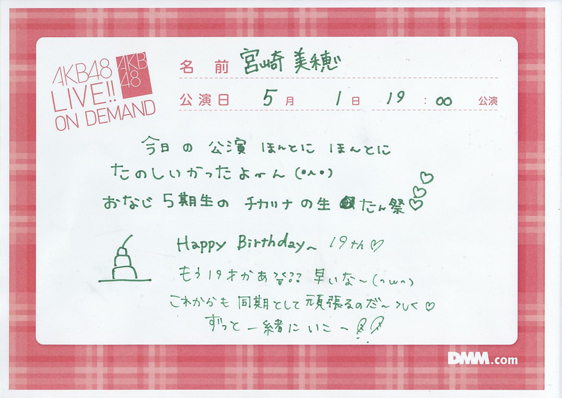 AKB48
LIVE!!
ON DEMAND
AKB
48
名前 宮崎美穂
公演日 5月 1日 19:00 公演
今日の公演ほんとにほんとに
たのしいかったよーん(•^•)
おなじ5期生のチカリナの生たん祭♡♡♡
Happy Birthday~ 19th♡
もう19才かぁ??? 早いな~(∩ω∩)
これからも同期として頑張るのだ~ ♡
ずっと一緒にいこー
DMM.com